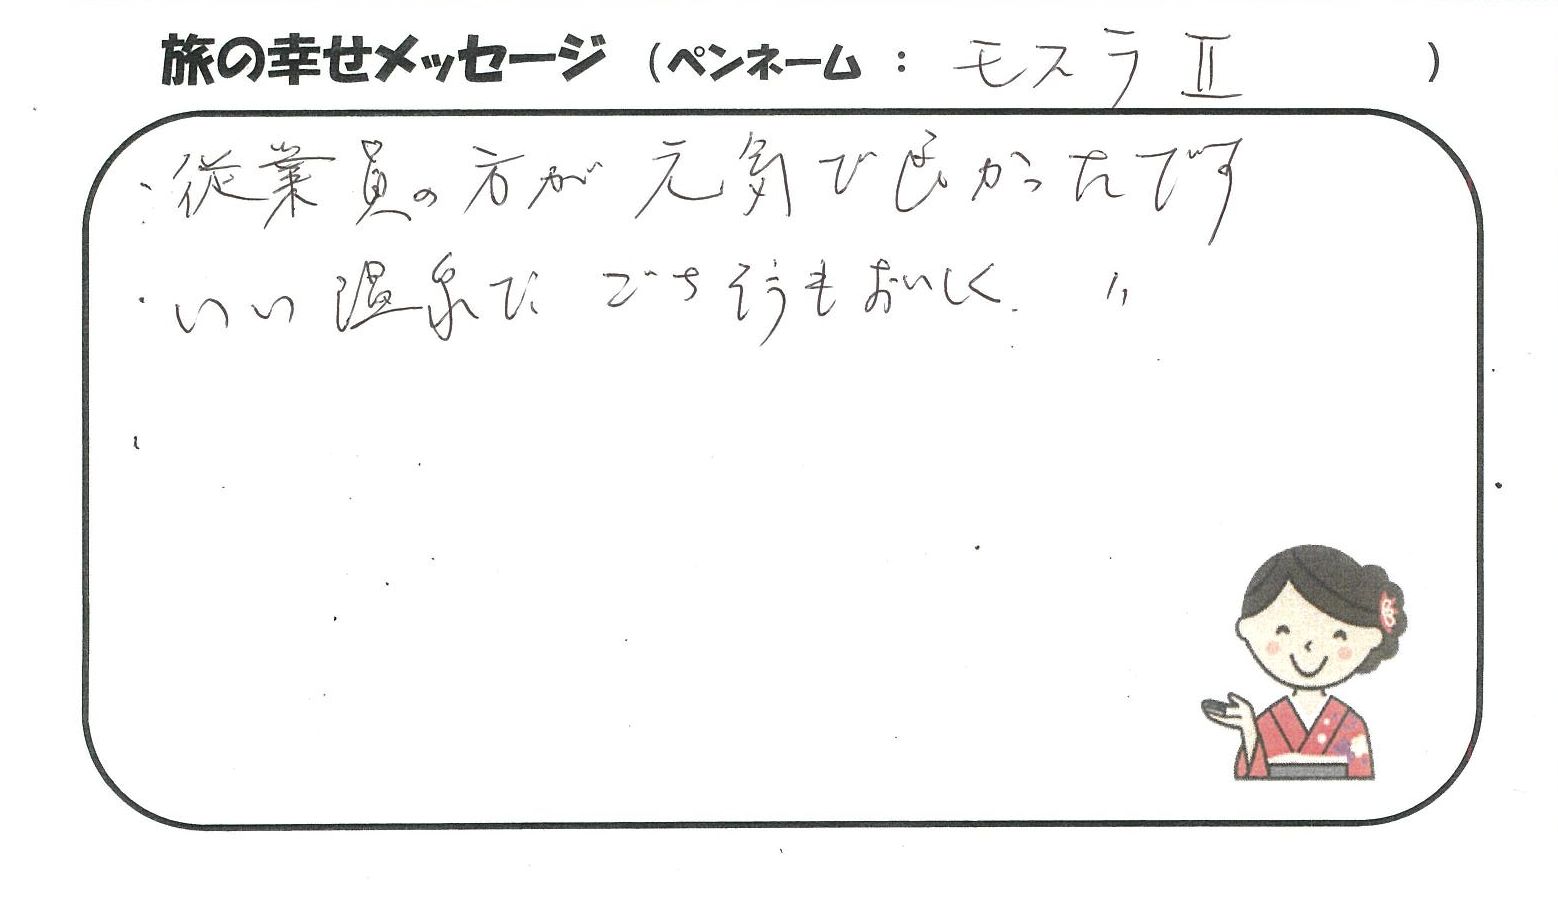 旅の幸せメッセージ (ペンネーム : モスラⅡ )
・従業員の方が元気で良かったです
・いい温泉で ごちそうもおいしく 〃